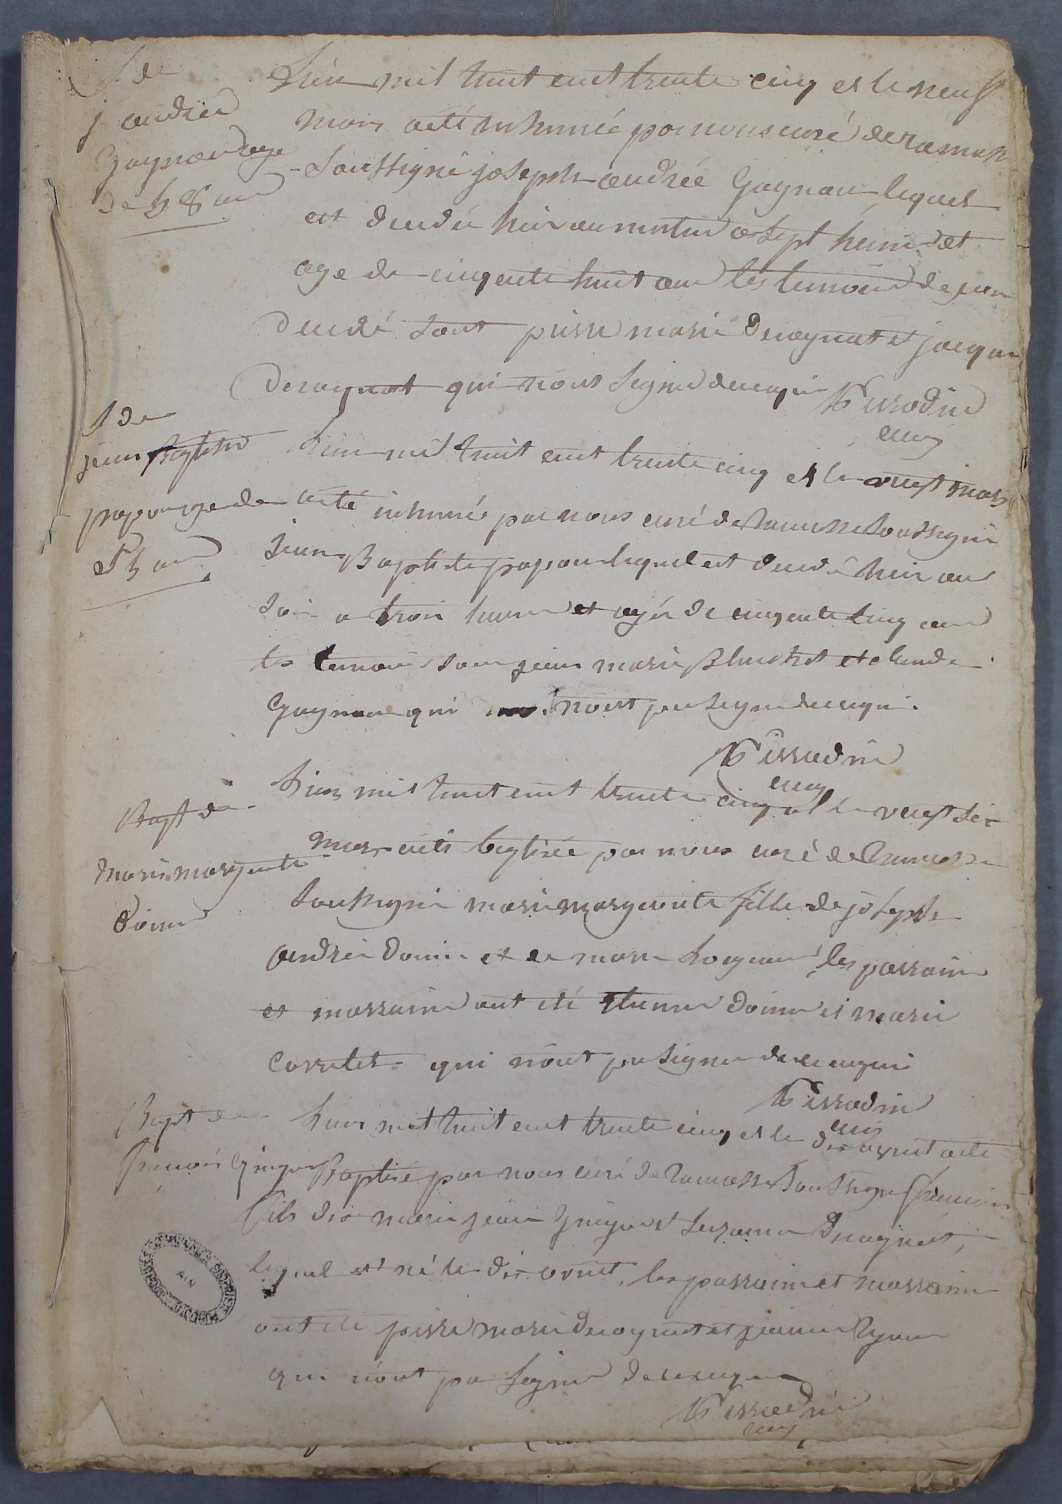 S de
j andrée
Gagneur age
de 58 ans
L'an mil huit cent trente cinq et le neuf
mars a été inhumée par nous curé de ramasse
soussigné joseph andrée Gagneur lequel
est decedé hier au matin a sept heure et
age de cinquante huit ans les temoins de son
decedé sont pierre marie deroynat et jacque
deroynat qui n'ont signé de requi
curé
S de
jean Baptiste
papon age de
55 ans
L'an mil huit cent trente cinq et le vingt mars
a été inhumée par nous curé de Ramasse soussigné
jean Baptiste papon lequel est decedé hier au
soir a trois heures et agée de cinquante cinq ans
les temoins sont jean marie et claude
Gagneur qui n'ont pas signé de requi.
curé
Bapt de
marie margerite
Doinne
L'an mil huit cent trente cinq et le vingt six
mars a été baptisée par nous curé de Ramasse
soussigné marie margerite fille de joseph
andrée Doinne et de marie les parrain
et marraine ont été Doinne et marie
Corretet qui n'ont pas signé de ce requi
curé
Bapt de
francois
L'an mil huit cent trente cinq et le dix avril a été
Baptisé par nous curé de Ramasse soussigné francois
fils de marie jean et Suzanne Deroynat,
lequel est né le dix avril, les parrain et marraine
ont été pierre marie deroynat et jeanne
qui n'ont pas signé de ce requi
curé
AIN